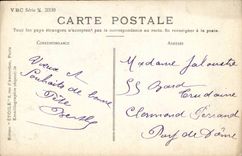 VBC Série N. 3339
CARTE POSTALE
Tous les pays étrangers n'acceptent pas la correspondance au recto. Se renseigner à la poste.
CORRESPONDANCE
ADRESSE
Madame
Vœux et
Souhaits de bonne
Fête
55 Cours
Clermont Ferrand
Puy de Dôme